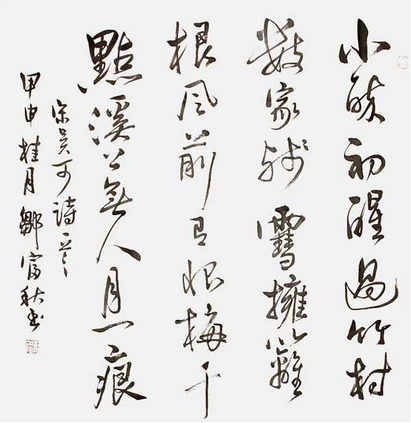 小醉初醒過竹村
數家殘雪擁籬
根風前有恨梅千
點溪上無人月一痕
宋吳可詩一首
甲申桂月鄒富秋書